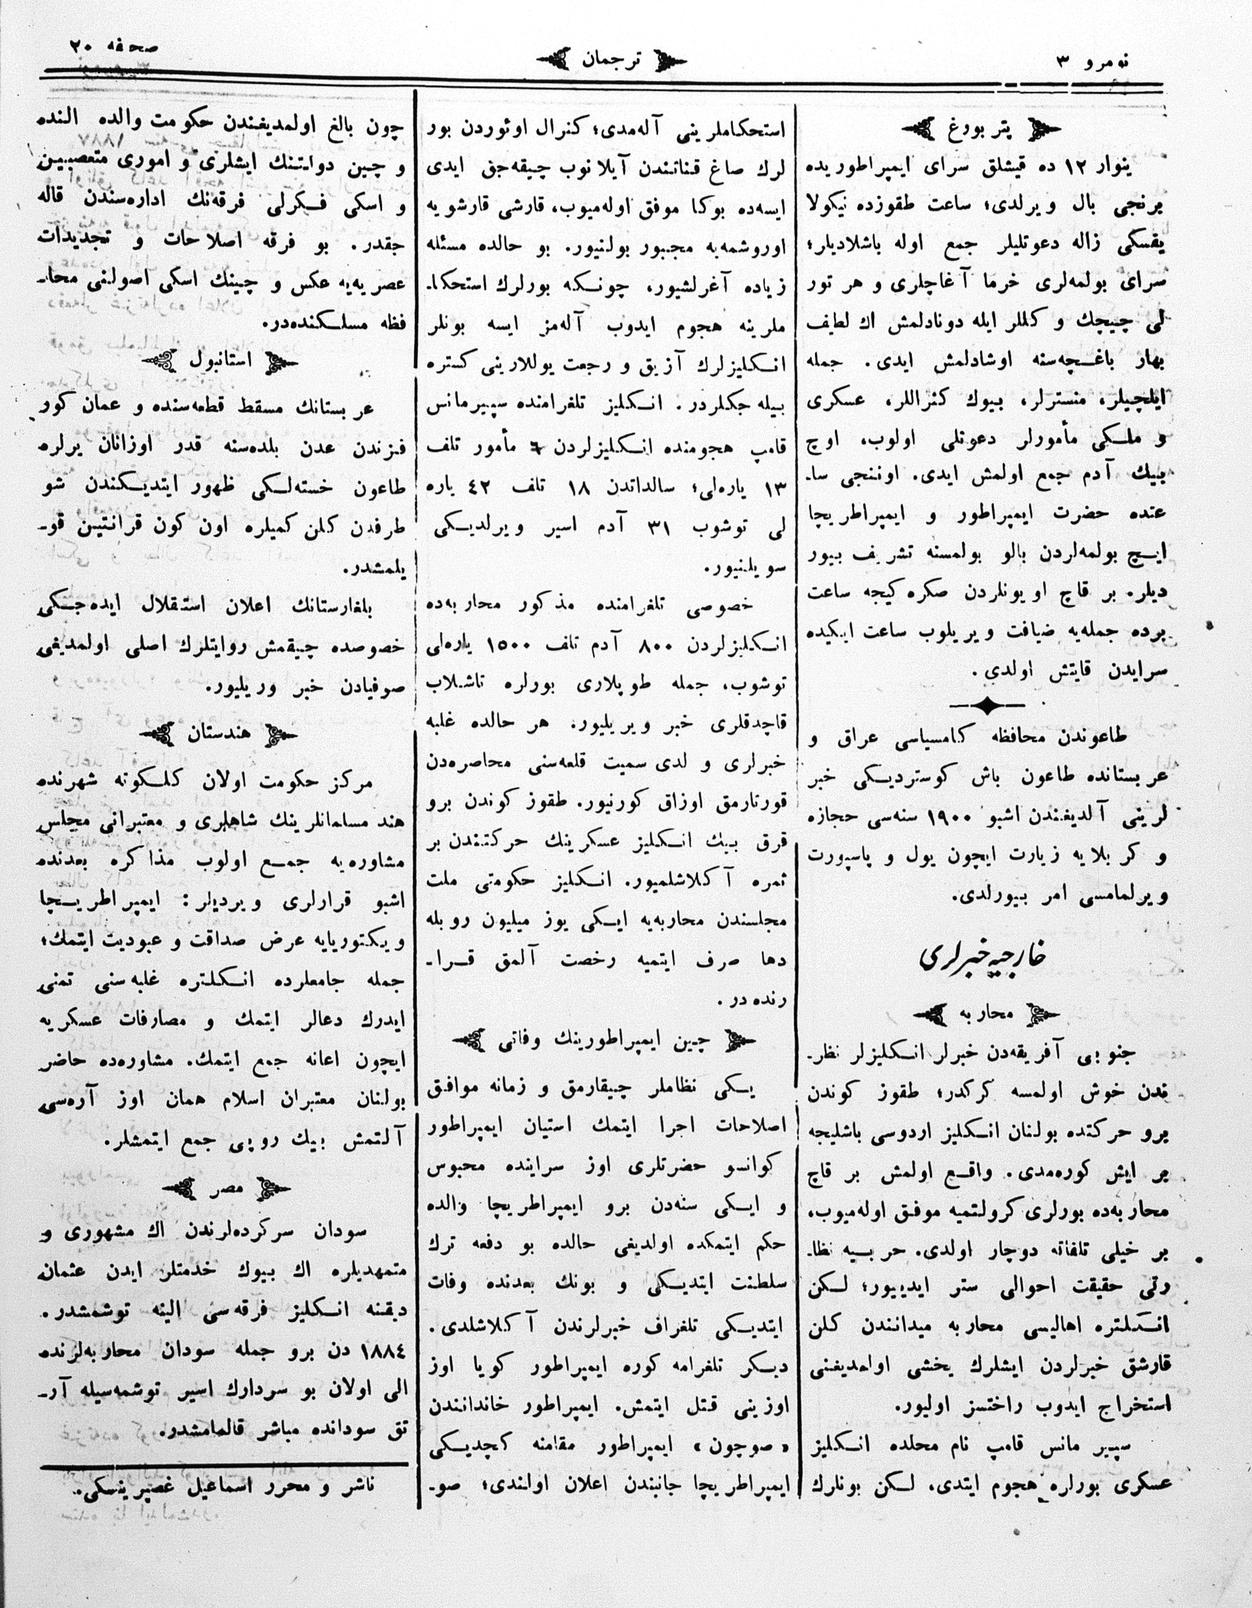 نومرو ٣
ترجمان
صحفه ٢٠
پتربورغ
ینوار ١٢ ده قیشلق سرای ایمپراطوریده
برنجی بال ویرلدی؛ ساعت طقوزده نیکولا
یفسکی زاله دعوتلیلر جمع اوله باشلادیلر؛
سرای بولمه‌لری خرما آغاچلری و هر تور
لی چیچك و کللر ایله دونادلمش اك لطیف
بهار باغچه‌سنه اوشادلمش ایدی. جمله
ایلچیلر، منسترلر، بیوك کنراللر، عسکری
و ملکی مأمورلر دعوتلی اولوب، اوچ
بیك آدم جمع اولمش ایدی. اوننجی سا۔
عتده حضرت ایمپراطور و ایمپراطریچا
ایچ بولمه‌لردن بالو بولمسنه تشریف بیور
دیلر. بر قاچ اویونلردن صکره کیجه ساعت
برده جمله‌یه ضیافت ویریلوب ساعت ایکیده
سرایدن قایتش اولدی.
طاعوندن محافظه کامسیاسی عراق و
عربستانده طاعون باش کوستردیکی خبر
لرینی آلدیغندن اشبو ١٩٠٠ سنه‌سی حجازه
و کربلایه زیارت ایچون یول و پاسپورت
ویرلمامسی امر بیورلدی.
خارجیه خبرلری
محاربه
جنوبی آفریقه‌دن خبرلر انکلیزلر نظر۔
ندن خوش اولمسه کرکدر؛ طقوز کوندن
برو حرکتده بولنان انکلیز اردوسی باشلیجه
بر ایش کوره‌مدی. واقع اولمش بر قاچ
محاربه‌ده بورلری کرولتمیه موفق اوله‌میوب،
بر خیلی تلفاته دوچار اولدی. حربیه نظا۔
رتی حقیقت احوالی ستر ایدییور؛ لکن
انکلتره اهالیسی محاربه میدانندن کلن
قارشق خبرلردن ایشلرك یخشی اولمدیغنی
استخراج ایدوب راختسز اولیور.
سپیر مانس قامپ نام محلده انکلیز
عسکری بورلره هجوم ایتدی. لکن بونلرك
استحکاملرینی آله‌مدی؛ کنرال اوئوردن بور
لرك صاغ قناتندن آیلانوب چیقه‌جق ایدی
ایسه‌ده بوکا موفق اوله‌میوب، قارشی قارشویه
اوروشمه‌یه مجبور بولنیور. بو حالده مسئله
زیاده آغرلشیور، چونکه بورلرك استحکا۔
ملرینه هجوم ایدوب آله‌مز ایسه بونلر
انکلیزلرك آزیق و رجعت یوللارینی کستره
بیله جکلردر. انکلیز تلغرامنده سپیرمانس
قامپ هجومنده انکلیزلردن ٦ مأمور تلف
١٣ یاره‌لی؛ سالداتدن ١٨ تلف ٤٢ یاره
لی توشوب ٣١ آدم اسیر ویرلدیکی
سویلنیور.
خصوصی تلغرامنده مذکور محاربه‌ده
انکلیزلردن ٨٠٠ آدم تلف ١٥٠٠ یاره‌لی
توشوب، جمله طوپلاری بورلره تاشلاب
قاچدقلری خبر ویریلیور. هر حالده غلبه
خبرلری و لدی سمیت قلعه‌سنی محاصره‌دن
قورتارمق اوزاق کورنیور. طقوز کوندن برو
قرق بیك انکلیز عسکرینك حرکتندن بر
ثمره آکلاشلمیور. انکلیز حکومتی ملت
مجلسندن محاربه‌یه ایکی یوز میلیون روبله
دها صرف ایتمیه رخصت آلمق قرا۔
رنده در.
چین ایمپراطورینك وفاتی
یکی نظاملر چیقارمق و زمانه موافق
اصلاحات اجرا ایتمك استیان ایمپراطور
کوانسو حضرتلری اوز سراینده محبوس
و ایکی سنه‌دن برو ایمپراطریچا والده
حکم ایتمکده اولدیغی حالده بو دفعه ترك
سلطنت ایتدیکی و بونك بعدنده وفات
ایتدیکی تلغراف خبرلرندن آکلاشلدی.
دیکر تلغرامه کوره ایمپراطور کویا اوز
اوزینی قتل ایتمش. ایمپراطور خاندانندن
«صوچون» ایمپراطور مقامنه کچدیکی
ایمپراطریچا جانبندن اعلان اولندی؛ صو۔
چون بالغ اولمدیغندن حکومت والده الند‌ه
و چین دولتنك ایشلری و اموری متعصبین
و اسکی فکرلی فرقه‌نك اداره‌سندن قاله
جقدر. بو فرقه اصلاحات و تجدیدات
عصریه‌یه عکس و چینك اسکی اصولنی محا۔
فظه مسلکنده‌در.
استانبول
عربستانك مسقط قطعه‌سنده و عمان کور
فزندن عدن بلده‌سنه قدر اوزانان یرلره
طاعون خسته‌لکی ظهور ایتدیکندن شو
طرفدن کلن کمیلره اون کون قرانتین قو۔
یلمشدر.
بلغارستانك اعلان استقلال ایده‌جکی
خصوصده چیقمش روایتلرك اصلی اولمدیغی
صوفیادن خبر وریلیور.
هندستان
مرکز حکومت اولان کلکوته شهرنده
هند مسلمانلرینك شاهلری و معتبرانی مجلس
مشاوره‌یه جمع اولوب مذاکره بعدنده
اشبو قرارلری ویردیلر: ایمپراطریچا
ویکتوریایه عرض صداقت و عبودیت ایتمك؛
جمله جامعلرده انکلتره غلبه‌سنی تمنی
ایدرك دعالر ایتمك و مصارفات عسکریه
ایچون اعانه جمع ایتمك. مشاوره‌ده حاضر
بولنان معتبران اسلام همان اوز آره‌سی
آلتمش بیك روپی جمع ایتمشلر.
مصر
سودان سرکرده‌لرندن اك مشهوری و
متمهدیلره اك بیوك خدمتلر ایدن عثمان
دیقنه انکلیز فرقه‌سی الینه توشمشدر.
١٨٨٤ دن برو جمله سودان محاربه‌لرنده
الی اولان بو سردارك اسیر توشمه‌سیله آر۔
تق سودانده مباشر قالمامشدر.
ناشر و محرر اسماعیل غصپرینسکی.